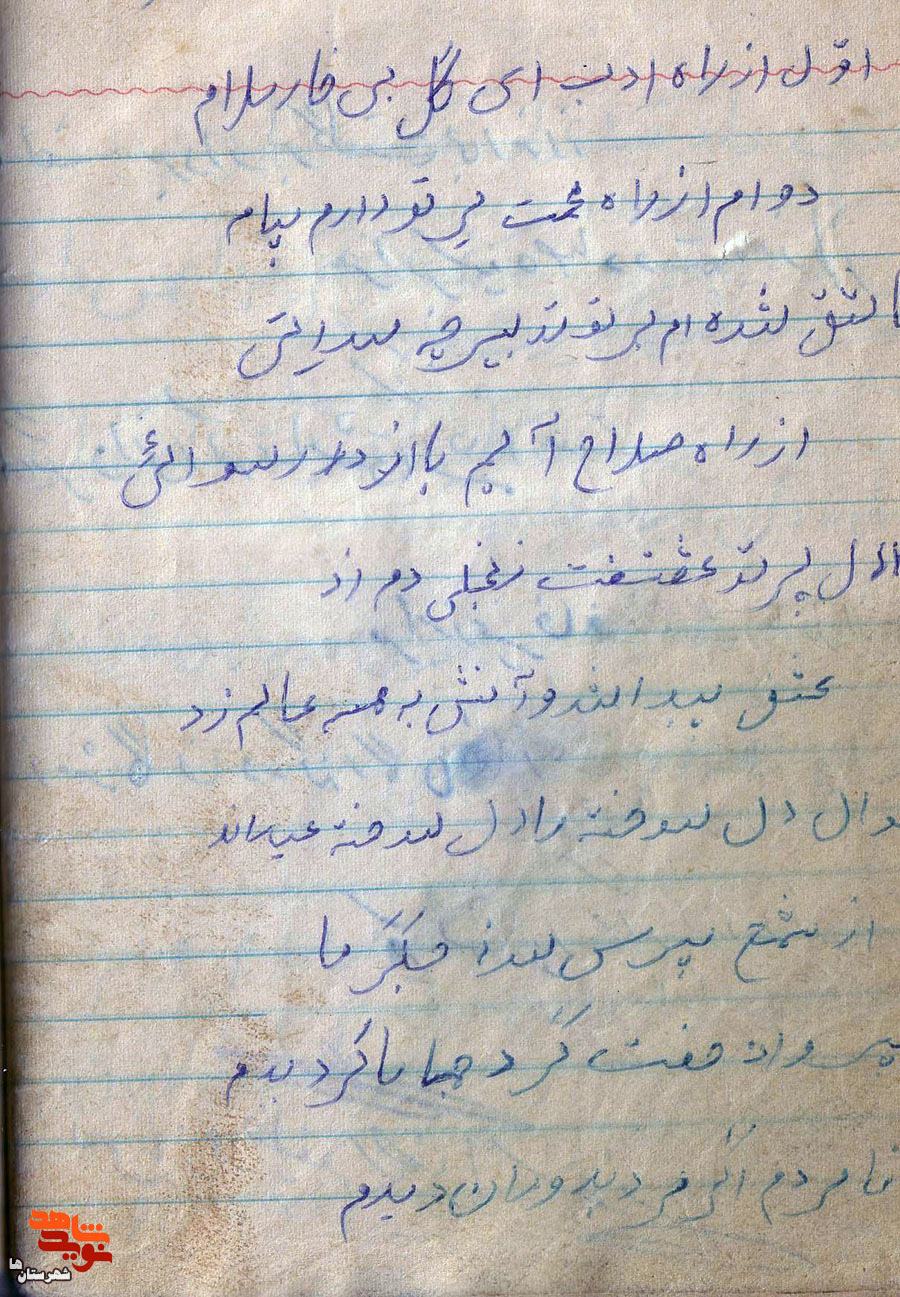 اوّل از راه ادب ای گل بی خار سلام
دوام از راه محبت بر تو دارم پیام
عاشق شده ام بر تو تدبیر چه
از راه صلاح آیم یا از در رسوائی
ازل پر تو تجلی دم زد
عشق پیدا شد و آتش به همه عالم زد
احوال دل سوخته را دل سوخته
از شمع بپرس سوز جگر ما
پروانه صفت گرد جهان گردیدم
نا مردم اگر مرد به دوران دیدم
نوید شاهد
شهرستان ها